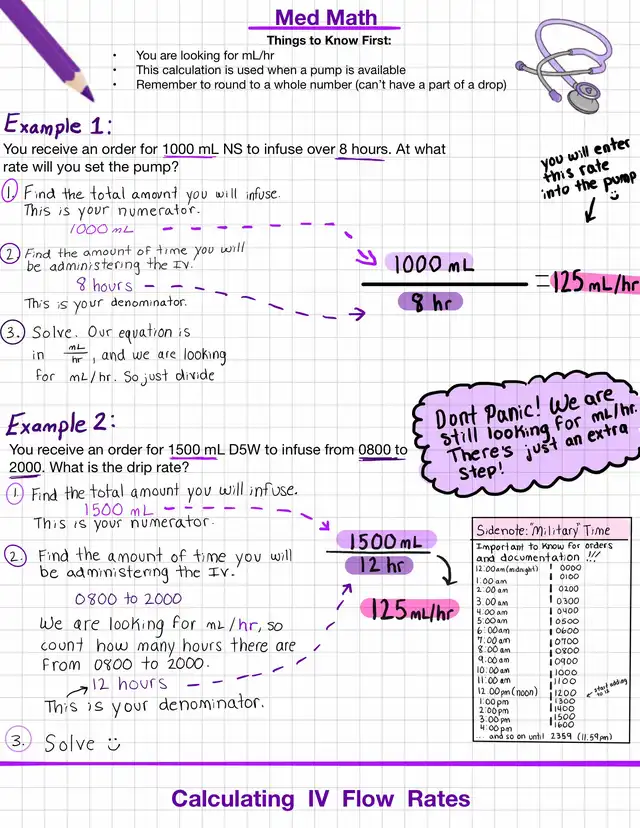 Med Math
Things to Know First:
• You are looking for mL/hr
• This calculation is used when a pump is available
• Remember to round to a whole number (can't have a part of a drop)
Example 1:
You receive an order for 1000 mL NS to infuse over 8 hours. At what
rate will you set the pump?
1. Find the total amount you will infuse.
This is your numerator.
1000 mL
2. Find the amount of time you will
be administering the IV.
8 hours
This is your denominator.
3. Solve. Our equation is
in mL/hr, and we are looking
for mL/hr. So just divide
you will enter
this rate
into the pump
1000 mL
8 hr
= 125 mL/hr
Example 2:
You receive an order for 1500 mL D5W to infuse from 0800 to
2000. What is the drip rate?
1. Find the total amount you will infuse.
1500 mL
This is your numerator.
2. Find the amount of time you will
be administering the IV.
0800 to 2000
We are looking for mL/hr, so
count how many hours there are
from 0800 to 2000.
12 hours
This is your denominator.
3. Solve
1500 mL
12 hr
125 mL/hr
Dont Panic! We are
still looking for mL/hr.
There's just an extra
step!
Sidenote: "Military" Time
Important to know for orders
and documentation !!!
12:00am (midnight) 0000
1:00am 0100
2:00am 0200
3:00am 0300
4:00am 0400
5:00am 0500
6:00am 0600
7:00am 0700
8:00am 0800
9:00am 0900
10:00am 1000
11:00am 1100
12:00pm (noon) 1200
start adding
to 12
1:00pm 1300
2:00pm 1400
3:00pm 1500
4:00pm 1600
... and so on until 2359 (11:59pm)
Calculating IV Flow Rates